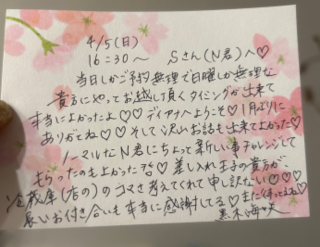 4/5(日)
16:30〜 Sさん(N君)へ♡
当日しかご予約無理で日曜しか無理な
貴方にやってお越し頂くタイミングが出来て
本当によかったよ♡♡ディアナへようこそ♡1月ぶりに
ありがとね♡♡そして沢山お話も出来てよかった♡
ノーマルなN君にちょって新しい事チャレンジして
もらったのもよかった 差し入れ王子の貴方が
冷蔵庫(店の)のコマさ考えてくれて申し訳ない♡♡♡
長いお付き合いも本当に感謝してる♡また待ってるね♡
黒木